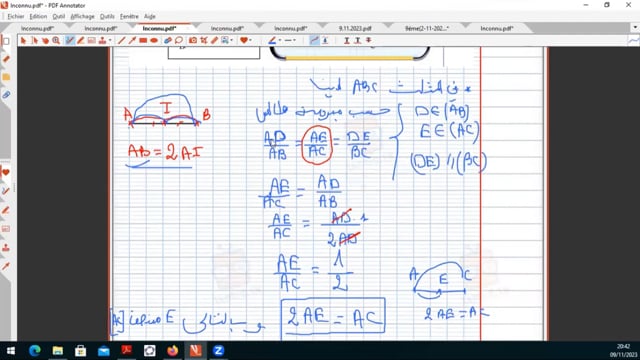 Inconnu.pdf* - PDF Annotator
Fichier Edition Affichage Document Outils Fenêtre Aide
Inconnu.pdf* Inconnu.pdf* Inconnu.pdf* Inconnu.pdf* 9.11.2023.pdf* 9ème(2-11-202... Inconnu.pdf*
في المثلث ABC لدينا
A I B
AB = 2AI
حسب مبرهنة طالس
D ∈ (AB)
E ∈ (AC)
(DE) // (BC)
AD/AB = AE/AC = DE/BC
AE/AC = AD/AB
AE/AC = AD 1/2AD
AE/AC = 1/2
A E C
2AE = AC
2AE = AC
وبالتالي E منتصف [AC]
20:42
09/11/2023